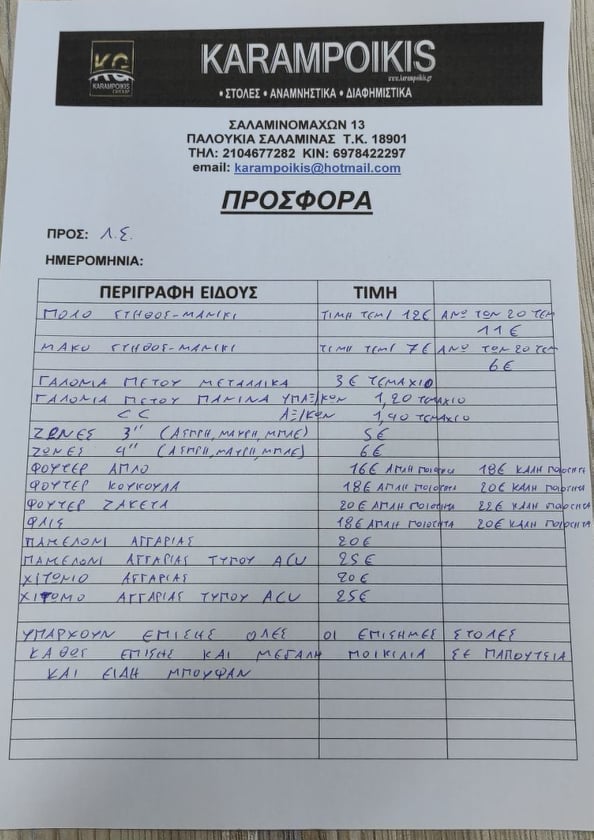 KG
KARAMPOIKIS
GROUP
KARAMPOIKIS
www.karampoikis.gr
• ΣΤΟΛΕΣ • ΑΝΑΜΝΗΣΤΙΚΑ • ΔΙΑΦΗΜΙΣΤΙΚΑ
ΣΑΛΑΜΙΝΟΜΑΧΩΝ 13
ΠΑΛΟΥΚΙΑ ΣΑΛΑΜΙΝΑΣ Τ.Κ. 18901
ΤΗΛ: 2104677282 ΚΙΝ: 6978422297
email: karampoikis@hotmail.com
ΠΡΟΣΦΟΡΑ
ΠΡΟΣ: Λ.Σ.
ΗΜΕΡΟΜΗΝΙΑ:
ΠΕΡΙΓΡΑΦΗ ΕΙΔΟΥΣ ΤΙΜΗ
ΠΟΛΟ ΣΤΗΘΟΣ-ΜΑΝΙΚΙ ΤΙΜΗ ΤΕΜ/ 12€ ΑΝΩ ΤΩΝ 20 ΤΕΜ
11€
ΜΑΚΟ ΣΤΗΘΟΣ-ΜΑΝΙΚΙ ΤΙΜΗ ΤΕΜ/ 7€ ΑΝΩ ΤΩΝ 20 ΤΕΜ
6€
ΓΑΛΟΝΙΑ ΠΕΤΟΥ ΜΕΤΑΛΛΙΚΑ 3€ ΤΕΜΑΧΙΟ
ΓΑΛΟΝΙΑ ΠΕΤΟΥ ΠΑΝΙΝΑ ΥΠΑΞ/ΚΩΝ 1,20 ΤΕΜΑΧΙΟ
CC ΑΞ/ΚΩΝ 1,40 ΤΕΜΑΧΙΟ
ΖΩΝΕΣ 3'' (ΑΣΠΡΗ, ΜΑΥΡΗ, ΜΠΛΕ) 5€
ΖΩΝΕΣ 4'' (ΑΣΠΡΗ, ΜΑΥΡΗ, ΜΠΛΕ) 6€
ΦΟΥΤΕΡ ΑΠΛΟ 16€ ΑΠΛΗ ΠΟΙΟΤΗΤΑ 18€ ΚΑΛΗ ΠΟΙΟΤΗΤΑ
ΦΟΥΤΕΡ ΚΟΥΚΟΥΛΑ 18€ ΑΠΛΗ ΠΟΙΟΤΗΤΑ 20€ ΚΑΛΗ ΠΟΙΟΤΗΤΑ
ΦΟΥΤΕΡ ΖΑΚΕΤΑ 20€ ΑΠΛΗ ΠΟΙΟΤΗΤΑ 22€ ΚΑΛΗ ΠΟΙΟΤΗΤΑ
ΦΛΙΣ 18€ ΑΠΛΗ ΠΟΙΟΤΗΤΑ 20€ ΚΑΛΗ ΠΟΙΟΤΗΤΑ
ΠΑΝΕΛΟΝΙ ΑΓΓΑΡΙΑΣ 20€
ΠΑΝΕΛΟΝΙ ΑΓΓΑΡΙΑΣ ΤΥΠΟΥ ACU 25€
ΧΙΤΩΝΙΟ ΑΓΓΑΡΙΑΣ 20€
ΧΙΤΩΝΙΟ ΑΓΓΑΡΙΑΣ ΤΥΠΟΥ ACU 25€
ΥΠΑΡΧΟΥΝ ΕΠΙΣΗΣ ΟΛΕΣ ΟΙ ΕΠΙΣΗΜΕΣ ΣΤΟΛΕΣ
ΚΑΘΩΣ ΕΠΙΣΗΣ ΚΑΙ ΜΕΓΑΛΗ ΠΟΙΚΙΛΙΑ ΣΕ ΠΑΠΟΥΤΣΙΑ
ΚΑΙ ΕΙΔΗ ΜΠΟΥΦΑΝ